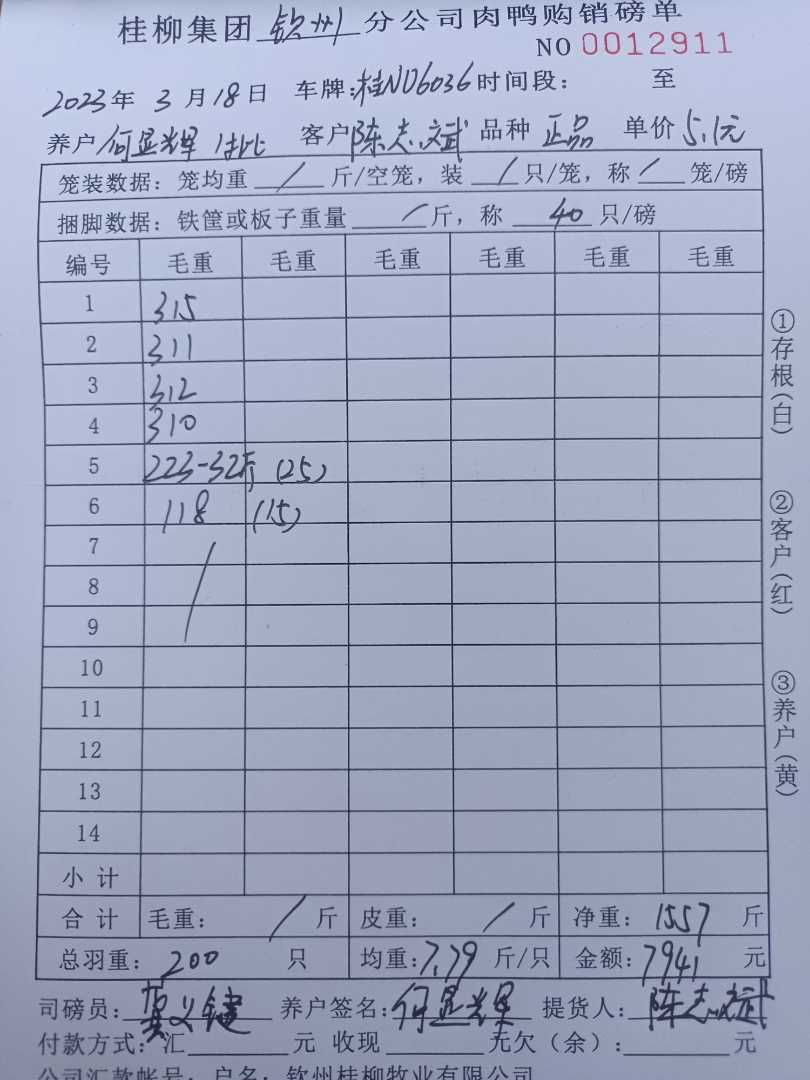 桂柳集团 钦州 分公司肉鸭购销磅单
NO 0012911
2023年 3月18日 车牌:桂ND6036 时间段: 至
养户 何显辉 1批 客户 陈志斌 品种 正品 单价 5.1元
笼装数据: 笼均重 / 斤/空笼, 装 / 只/笼, 称 / 笼/磅
捆脚数据: 铁筐或板子重量 / 斤, 称 40 只/磅
编号 毛重 毛重 毛重 毛重 毛重 毛重
1 315
2 311
3 312
4 310
5 223-32斤 (25)
6 118 (15)
7
8
9
10
11
12
13
14
小 计
合 计 毛重: / 斤 皮重: / 斤 净重: 1557 斤
总羽重: 200 只 均重:7.79 斤/只 金额:7941 元
司磅员: 义键 养户签名:何显辉 提货人: 陈志斌
付款方式: 汇 元 收现 元欠(余): 元
公司汇款帐号: 户名: 钦州桂柳牧业有限公司
①存根(白)
②客户(红)
③养户(黄)